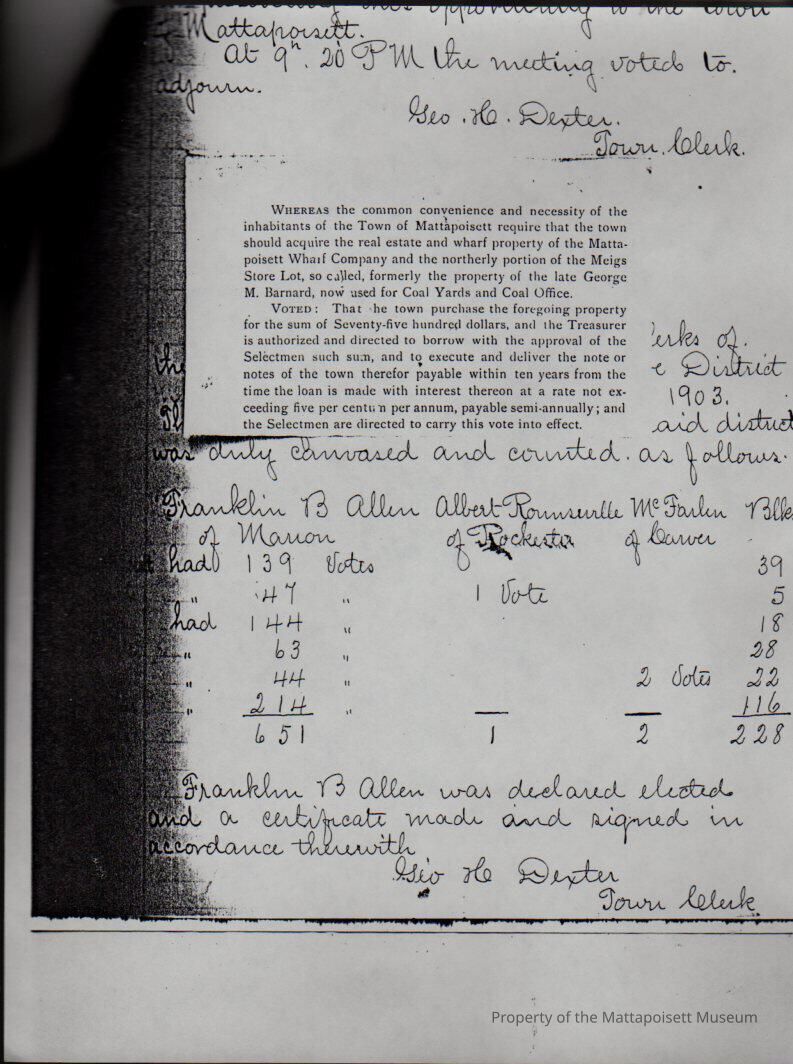 this opportunity to the town
of Mattapoisett.
At 9h. 20 PM the meeting voted to.
adjourn.
Geo. H. Dexter.
Town. Clerk.
WHEREAS the common convenience and necessity of the
inhabitants of the Town of Mattapoisett require that the town
should acquire the real estate and wharf property of the Matta-
poisett Wharf Company and the northerly portion of the Meigs
Store Lot, so called, formerly the property of the late George
M. Barnard, now used for Coal Yards and Coal Office.
VOTED: That he town purchase the foregoing property
for the sum of Seventy-five hundred dollars, and the Treasurer
is authorized and directed to borrow with the approval of the
Selectmen such sum, and to execute and deliver the note or
notes of the town therefor payable within ten years from the
time the loan is made with interest thereon at a rate not ex-
ceeding five per centum per annum, payable semi-annually; and
the Selectmen are directed to carry this vote into effect.
erks of.
the e District
1903.
aid district
was duly canvased and counted. as follows.
Franklin B Allen Albert Rounseville McFarlin Blks
of Marion of Rochester of Carver
had 139 Votes 39
" 47 " 1 Vote 5
had 144 " 18
" 63 " 28
" 44 " 2 Votes 22
" 214 " 116
651 1 2 228
Franklin B Allen was declared elected
and a certificate made and signed in
accordance therewith
Geo H Dexter
Town Clerk
Property of the Mattapoisett Museum